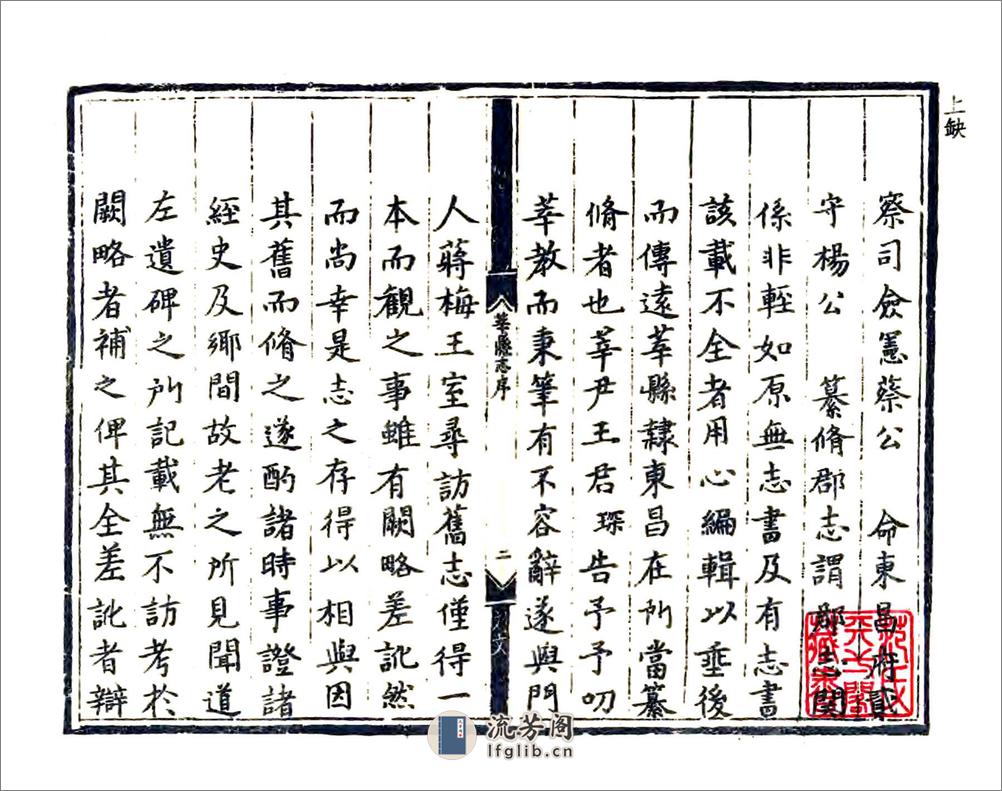 上缺
察司僉憲蔡公　命東昌府貳
守楊公　纂脩郡志謂郡志関
係非輕如原無志書及有志書
該載不全者用心編輯以垂後
而傳遠莘縣隸東昌在所當纂
脩者也莘尹王君琛告予予叨
莘教而秉筆有不容辭遂與門
莘縣志序
二
人蔣梅王室尋訪舊志僅得一
本而觀之事雖有闕略差訛然
而尚幸是志之存得以相與因
其舊而脩之遂酌諸時事證諸
經史及鄉間故老之所見聞道
左遺碑之所記載無不訪考於
闕略者補之俾其全差訛者辯
流芳阁
lfglib.cn